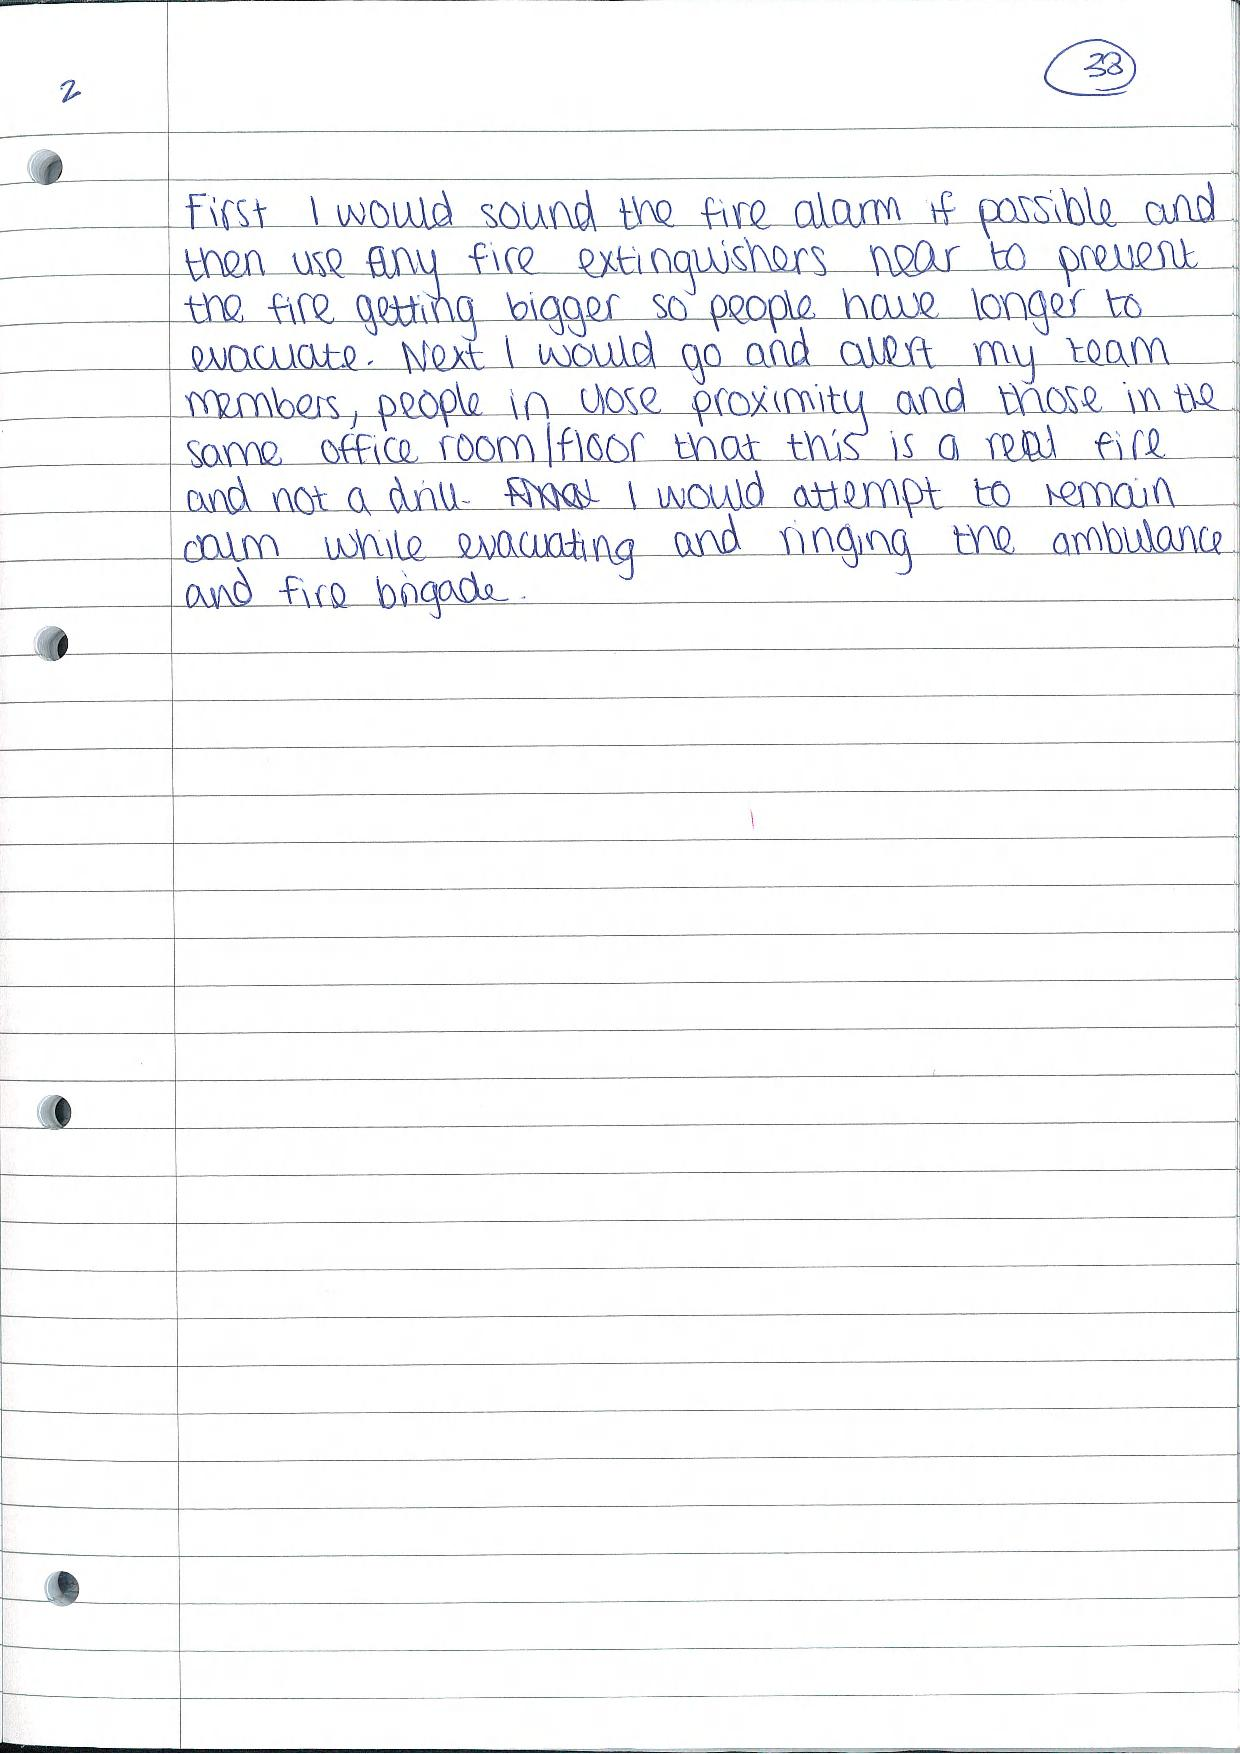 38
2
First I would sound the fire alarm if possible and
then use any fire extinguishers near to prevent
the fire getting bigger so people have longer to
evacuate. Next I would go and alert my team
members, people in close proximity and those in the
same office room/floor that this is a real fire
and not a drill. I would attempt to remain
calm while evacuating and ringing the ambulance
and fire brigade.